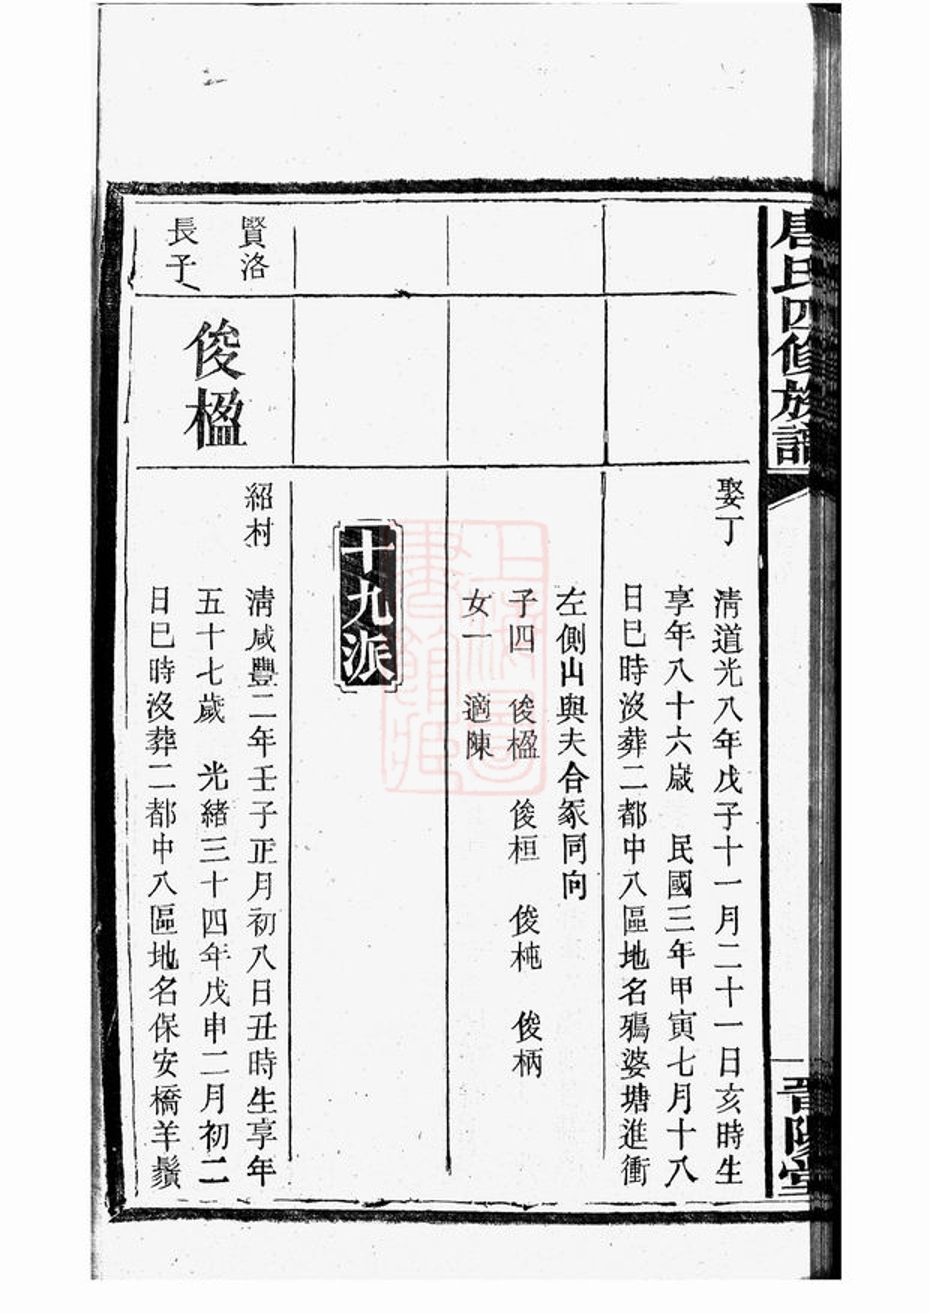 唐氏四修族譜
晉陽堂
娶丁
清道光八年戊子十一月二十一日亥時生
享年八十六嵗　民國三年甲寅七月十八
日巳時沒葬二都中八區地名鴉婆塘進衝
左側山與夫合冢同向
子四　俊楹　俊桓　俊杶　俊柄
女一　適陳
十九派
賢洛
長子
俊楹
紹村
清咸豐二年壬子正月初八日丑時生享年
五十七歲　光緒三十四年戊申二月初二
日巳時沒葬二都中八區地名保安橋羊鬚
上海圖
書館藏